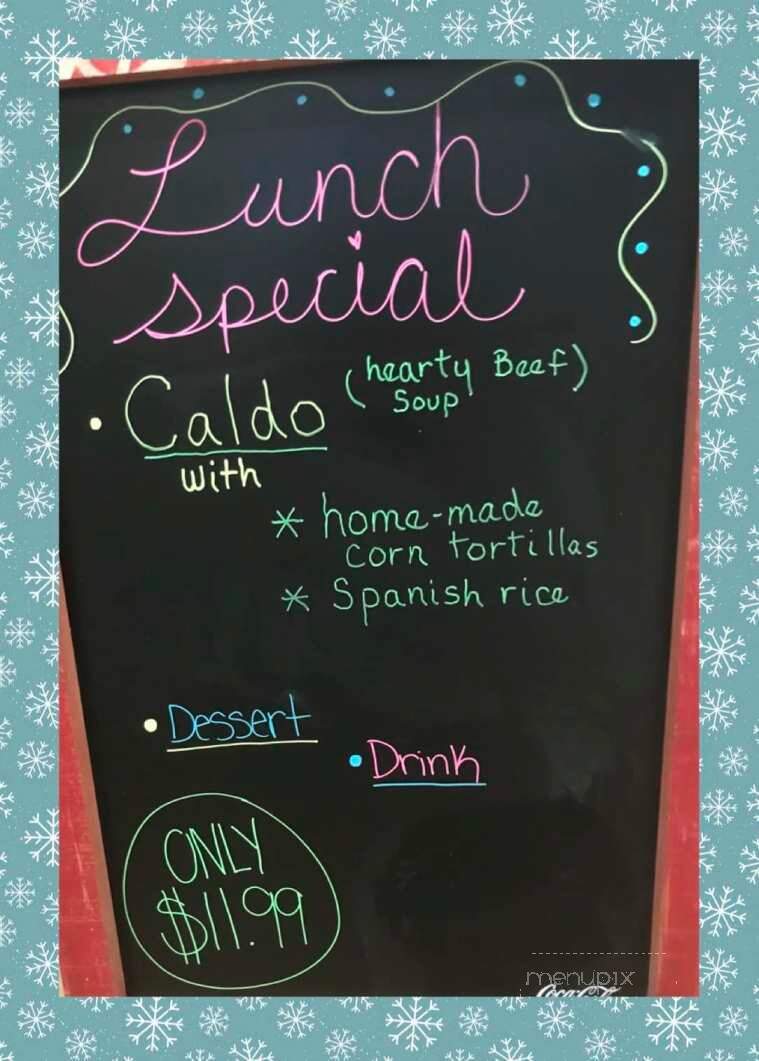 Lunch
special
• Caldo (hearty Beef)
Soup
with
* home-made
corn tortillas
* Spanish rice
• Dessert
• Drink
ONLY
$11.99
menupix
Coca-Cola